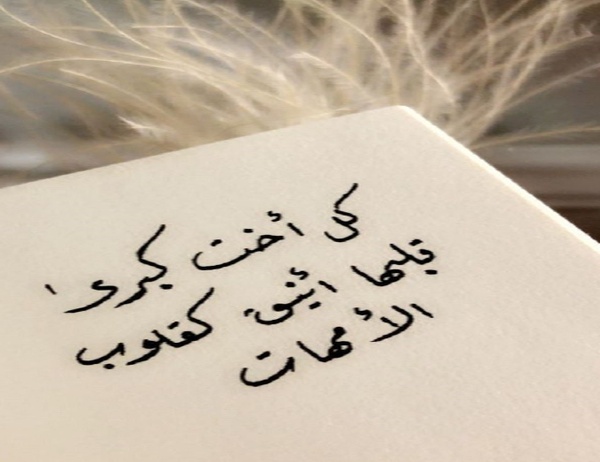 كل أخت كبرى،
قلبها أنيق كقلوب
الأمهات